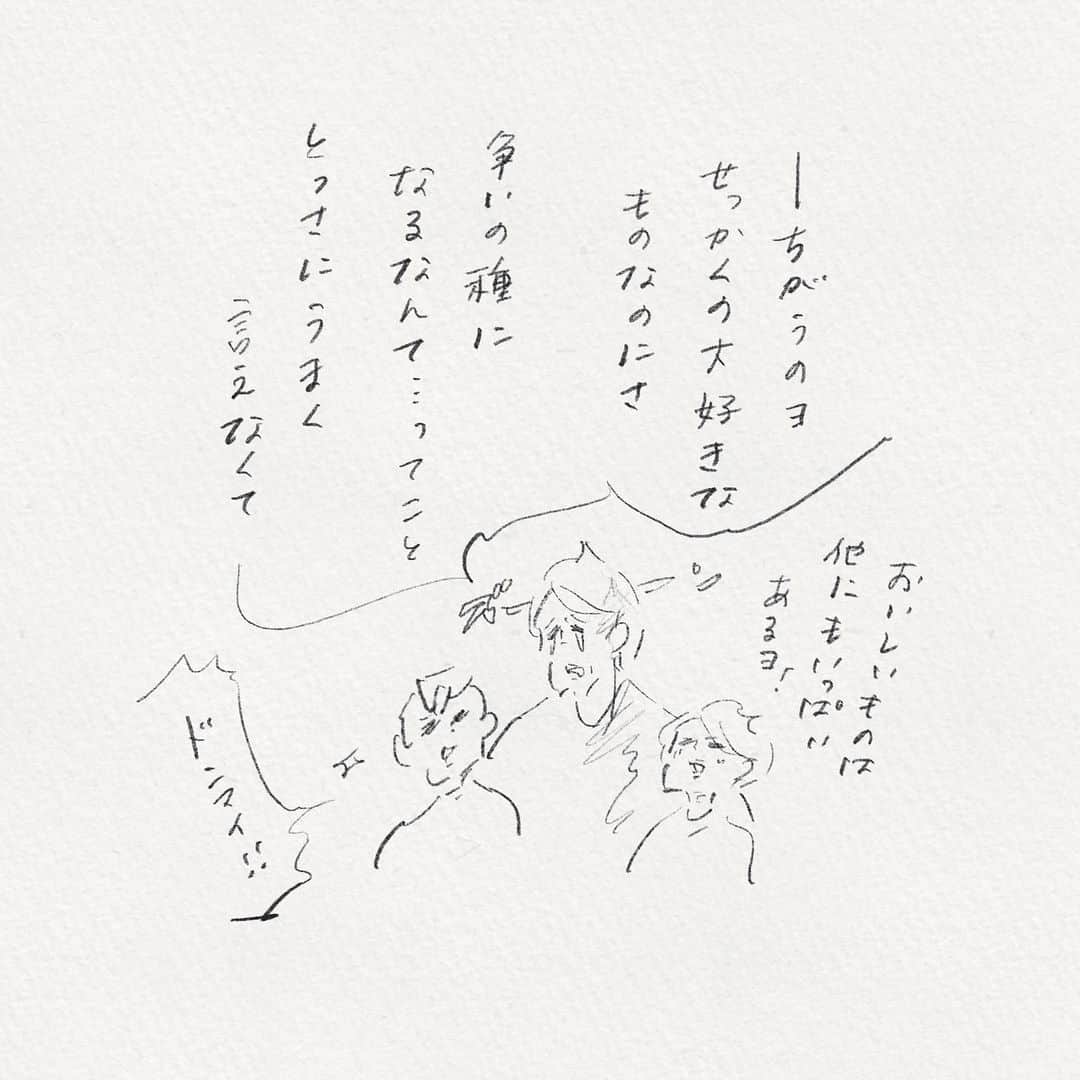 ―ちがうのヨ
せっかくの大好きな
ものなのにさ
争いの種に
なるなんて…ってこと
とっさにうまく
言えなくて
おいしいものは
他にもいっぱい
あるヨ!
ドンマイ!!